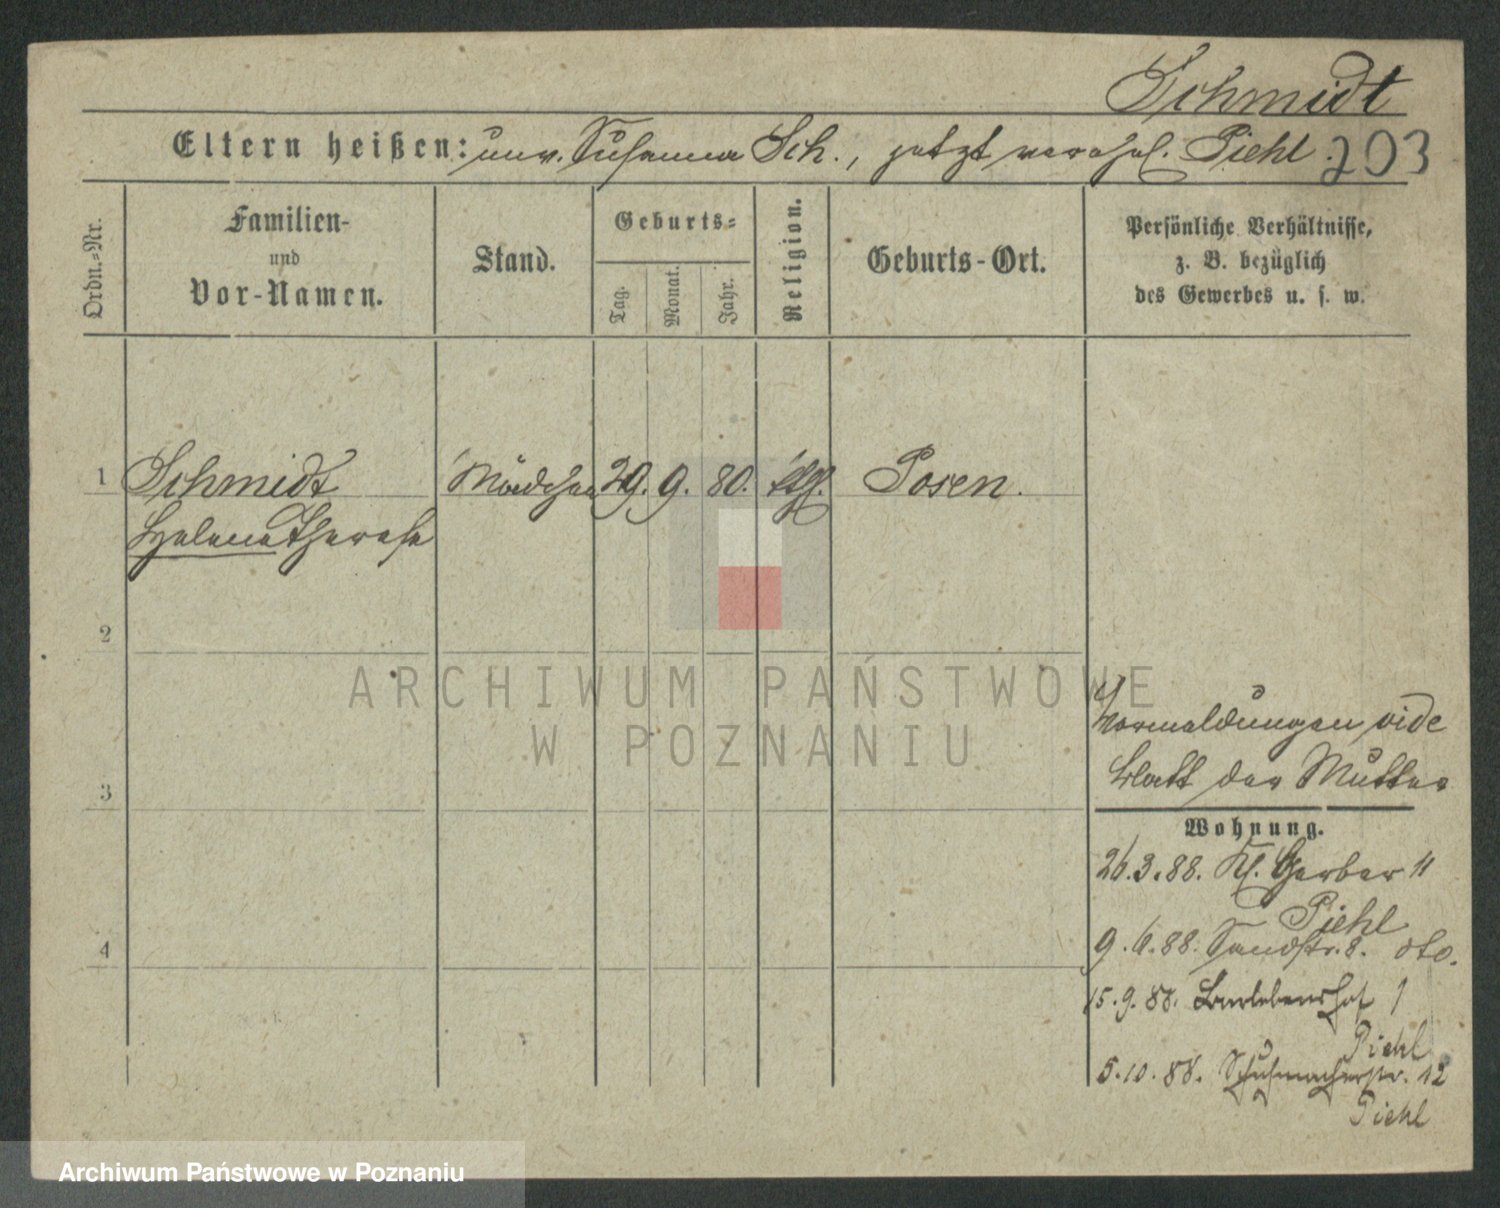 Schmidt
Eltern heißen: unv. Susanna Sch., jetzt verehel. Piehl.
203
Ordn.-Nr.
Familien-
und
Vor-Namen.
Stand.
Geburts-
Tag.
Monat.
Jahr.
Religion.
Geburts-Ort.
Persönliche Verhältnisse,
z. B. bezüglich
des Gewerbes u. s. w.
1 Schmidt Mädchen 29. 9. 80. Posen.
Helene Therese
2
3
4
ARCHIWUM PAŃSTWOWE
W POZNANIU
Vormeldungen vide
Blatt der Mutter
Wohnung.
26.3.88. Kl. Gerber 11
Piehl
9.6.88. Sandstr. 8. dto.
15.9.88. Barlebenshof 1
Piehl
5.10.88. Schuhmacherstr. 12
Piehl
Archiwum Państwowe w Poznaniu